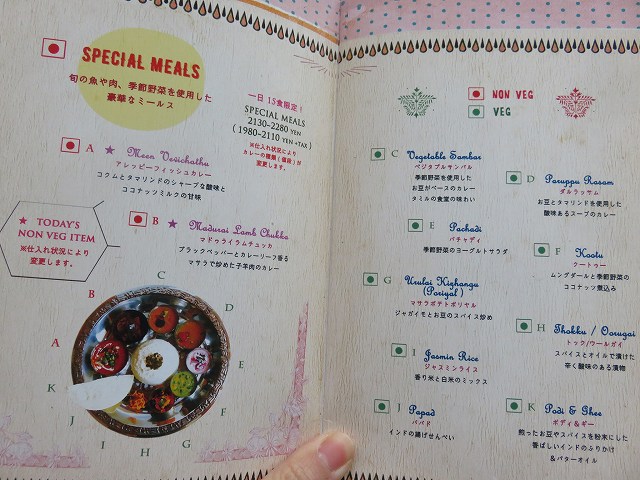 SPECIAL MEALS
旬の魚や肉、季節野菜を使用した
豪華なミールス
一日 15食限定!
SPECIAL MEALS
2130-2280 YEN
(1980-2110 YEN +TAX)
※仕入れ状況により
カレーの種類(値段)が
変更します。
A ★ Meen Vevichathu
アレッピーフィッシュカレー
コクムとタマリンドのシャープな酸味と
ココナッツミルクの甘味
★ TODAY'S
NON VEG ITEM
※仕入れ状況により
変更します。
B ★ Madurai Lamb Chukka
マドゥライラムチュッカ
ブラックペッパーとカレーリーフ香る
マサラで炒めた子羊肉のカレー
A
B
C
D
E
F
G
H
I
J
K
NON VEG
VEG
C Vegetable Sambar
ベジタブルサンバル
季節野菜を使用した
お豆がベースのカレー
タミルの食堂の味わい
D Paruppu Rasam
ダルラッサム
お豆とタマリンドを使用した
酸味あるスープのカレー
E Pachadi
パチャディ
季節野菜のヨーグルトサラダ
F Kootu
クートゥー
ムングダールと季節野菜の
ココナッツ煮込み
G Urulai Kizhangu
(Poriyal)
マサラポテトポリヤル
ジャガイモとお豆のスパイス炒め
H Thokku / Oorugai
トック/ウールガイ
スパイスとオイルで漬けた
辛く酸味のある漬物
I Jasmin Rice
ジャスミンライス
香り米と白米のミックス
J Papad
パパド
インドの揚げせんべい
K Podi & Ghee
ポディ&ギー
煎ったお豆やスパイスを粉末にした
香ばしいインドのふりかけ
&バターオイル